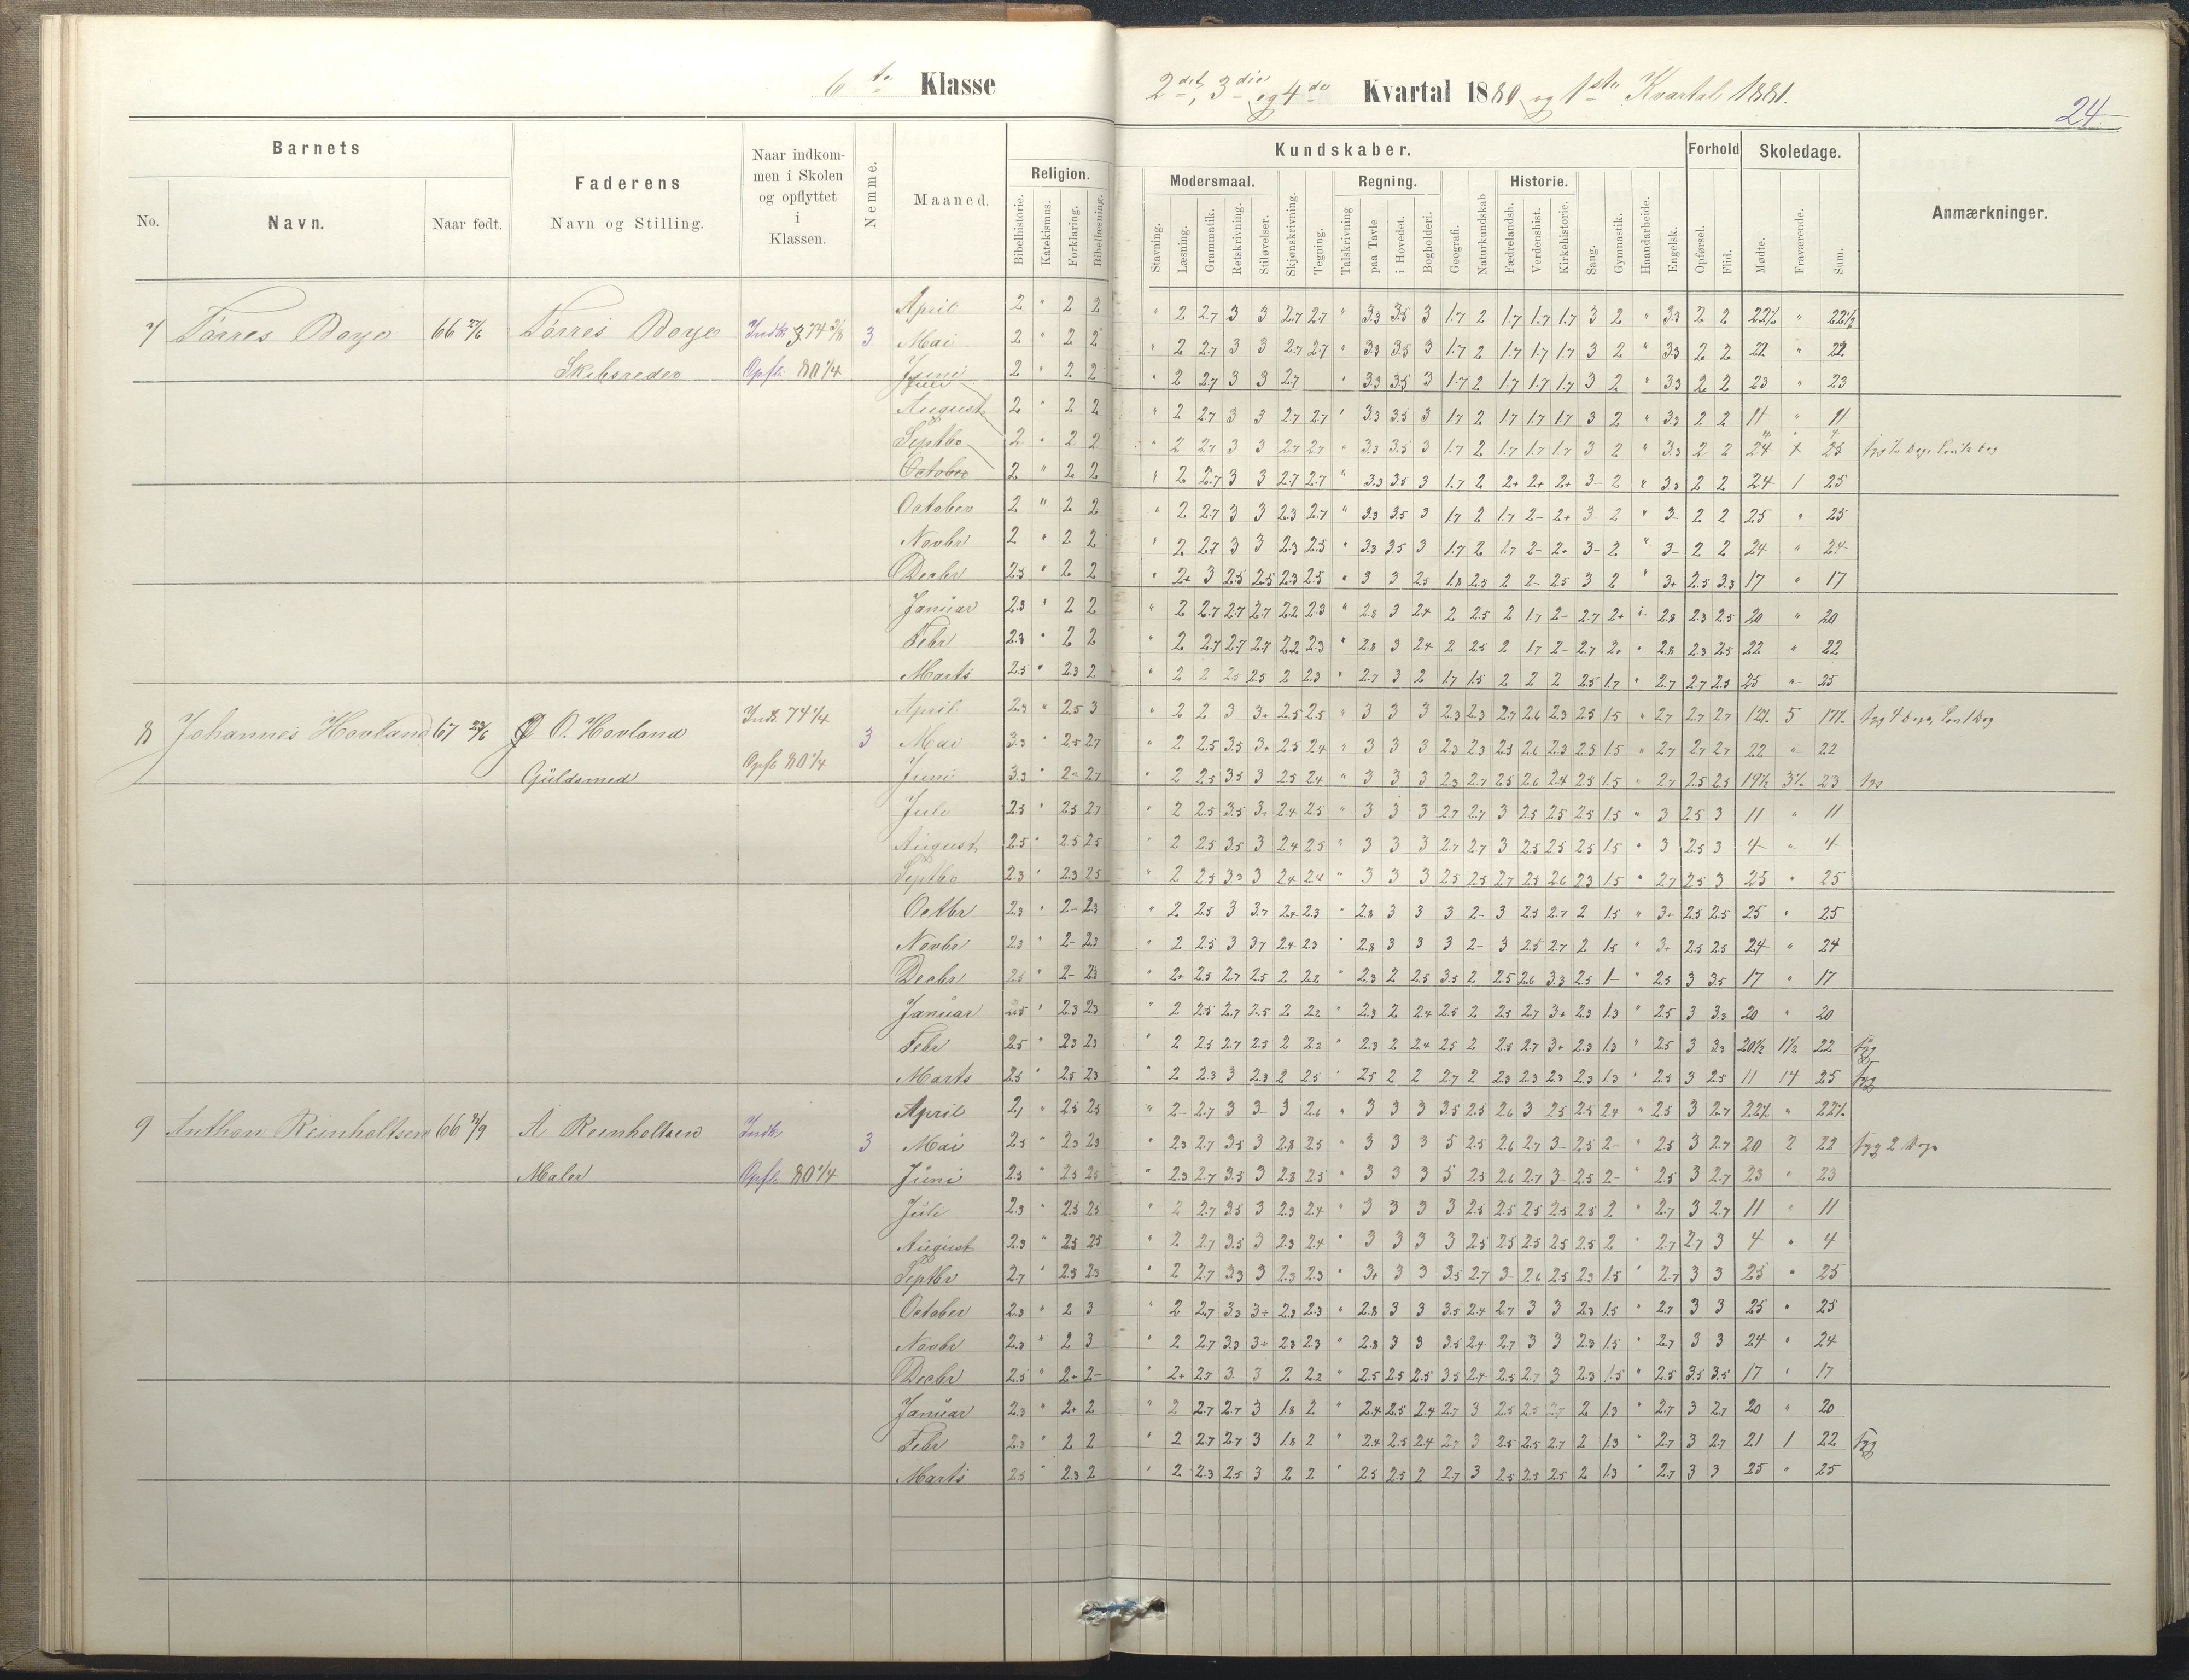 6te Klasse
2det, 3die og 4de Kvartal 1880 og 1ste Kvartal 1881.
24
Barnets
Faderens
Naar indkommen i Skolen og opflyttet i Klassen.
Nemme.
Maaned.
Religion.
Kundskaber.
Forhold
Skoledage.
Anmærkninger.
No.
Navn.
Naar født.
Navn og Stilling.
Bibelhistorie.
Katekismus.
Forklaring.
Bibellæsning.
Modersmaal.
Regning.
Historie.
Stavning.
Læsning.
Grammatik.
Retskrivning.
Stiløvelser.
Skjønskrivning.
Tegning.
Talskrivning
paa Tavle
i Hovedet.
Bogholderi.
Geografi.
Naturkundskab
Fædrelandsh.
Verdenshist.
Kirkehistorie.
Sang.
Gymnastik.
Haandarbeide.
Engelsk.
Opførsel.
Flid.
Mødte.
Fraværende.
Sum.
April 2 " 2 2 " 2 2.7 3 3 2.7 2.7 " 3.3 3.5 3 1.7 2 1.7 1.7 1.7 3 2 " 3.3 2 2 22½ " 22½
7 Tørres Boye 66 Tørres Boye Indk 3 Mai 2 " 2 2 " 2 2.7 3 3 2.7 2.7 " 3.3 3.5 3 1.7 2 1.7 1.7 1.7 3 2 " 3.3 2 2 22 " 22
Skibsreder Opfl: 80 1/4 Juni 2 " 2 2 " 2 2.7 3 3 2.7 " 3.3 3.5 3 1.7 2 1.7 1.7 1.7 3 2 " 3.3 2 2 23 " 23
August 2 " 2 2 " 2 2.7 3 3 2.7 2.7 " 3.3 3.5 3 1.7 2 1.7 1.7 1.7 3 2 " 3.3 2 2 11 " 11
Septbr 2 " 2 2 " 2 2.7 3 3 2.7 2.7 " 3.3 3.5 3 1.7 2 1.7 1.7 1.7 3 2 " 3.3 2 2 24 25
October 2 " 2 2 " 2 2.7 3 3 2.7 2.7 " 3.3 3.5 3 1.7 2 2+ 2+ 2+ 3- 2 " 3.3 2 2 24 1 25
October 2 " 2 2 " 2 2.7 3 3 2.3 2.7 " 3.3 3.5 3 1.7 2 1.7 2- 2+ 3- 2 " 3- 2 2 25 " 25
Novbr 2 " 2 2 " 2 2.7 3 3 2.3 2.5 " 3.3 3.5 3 1.7 2 1.7 2- 2+ 3- 2 " 3- 2 2 24 " 24
Decbr 2.5 " 2 2 " 2+ 3 2.5 2.5 2.3 2.5 " 3 3 2.5 1.8 2.5 2 2- 2.5 3 2 " 3+ 2.5 3.3 17 " 17
Januar 2.3 " 2 2 " 2 2.7 2.7 2.7 2.2 2.3 " 2.8 3 2.4 2 2.5 2 1.7 2- 2.7 2+ " 2.8 2.3 2.5 20 " 20
Febr 2.3 " 2 2 " 2 2.7 2.7 2.7 2.2 2.3 " 2.8 3 2.4 2 2.5 2 1.7 2- 2.7 2+ " 2.8 2.3 2.5 22 " 22
Marts 2.5 " 2.3 2 " 2 2 2.5 2.5 2 2.3 " 2.7 3 2 1.7 1.5 2 2 2 2.5 1.7 " 2.7 2.7 2.5 25 " 25
Indk 74 1/4 April 2.3 " 2.5 3 " 2 2 3 3+ 2.5 2.5 " 3 3 3 2.3 2.3 2.7 2.6 2.3 2.5 1.5 " 2.7 2.7 2.7 12½ 5 17½ syg 4 Dage
8 Johannes Hovland 67 O. Hovland 3 Mai 3.3 " 2.5 2.7 " 2 2.5 3.5 3+ 2.5 2.4 " 3 3 3 2.3 2.3 2.5 2.6 2.3 2.5 1.5 " 2.7 2.7 2.7 22 " 22
Guldsmed Opfl 80 1/4 Juni 3.3 " 2.7 " 2 2.5 3.5 3 2.5 2.4 " 3 3 3 2.3 2.7 2.5 2.6 2.4 2.5 1.5 " 2.7 2.5 2.5 19½ 3½ 23 syg
Juli 2.5 " 2.5 2.7 " 2 2.5 3.5 3+ 2.4 2.5 " 3 3 3 2.7 2.7 3 2.5 2.5 2.5 1.5 " 3 2.5 3 11 " 11
August 2.5 " 2.5 2.5 " 2 2.5 3.5 3 2.4 2.5 " 3 3 3 2.7 2.7 3 2.5 2.5 2.5 1.5 " 3 2.5 3 4 " 4
Septbr 2.3 " 2.3 2.5 " 2 2.5 3.3 3 2.4 2.4 " 3 3 3 2.5 2.5 2.7 2.5 2.6 2.3 1.5 " 2.7 2.5 3 25 " 25
Octbr 2.3 " 2- 2.3 " 2 2.5 3 3.7 2.4 2.3 " 2.8 3 3 3 2- 3 2.5 2.7 2 1.5 " 3+ 2.5 2.5 25 " 25
Novbr 2.3 " 2- 2.3 " 2 2.5 3 3.7 2.4 2.3 " 2.8 3 3 3 2- 3 2.5 2.7 2 1.5 " 3+ 2.5 2.5 24 " 24
Decbr 2.5 " 2- 2.3 " 2+ 2.5 2.7 2.5 2 2.2 " 2.3 2 2.5 3.5 2 2.5 2.6 3.3 2.5 1- " 2.5 3 3.5 17 " 17
Januar 2.5 " 2.3 2.3 " 2 2.5 2.7 2.5 2 2.2 " 2.3 2 2.4 2.5 2 2.5 2.7 3+ 2.3 1.3 " 2.5 3 3.3 20 " 20
Febr 2.5 " 2.3 2.3 " 2 2.5 2.7 2.3 2 2.2 " 2.3 2 2.4 2.5 2 2.5 2.7 3+ 2.3 1.3 " 2.5 3 3.3 20½ 1½ 22 syg
Marts 2.5 " 2.5 2.3 " 2 2.3 3 2.3 2 2.5 " 2.5 2 2 2.7 2 2.3 2.3 2.3 2.3 1.3 " 2.5 3 2.5 11 14 25 syg
April " 2.5 2.5 " 2- 2.7 3 3- 3 2.6 " 3 3 3 3.5 2.5 2.6 3 2.5 2.5 2.4 " 2.5 3 2.7 22½ " 22½
9 Anthon Reinholtsen 66 A Reinholtsen Indk 3 Mai 2.5 " 2.3 2.3 " 2.3 2.7 3.5 3 2.8 2.5 " 3 3 3 5 2.5 2.6 2.7 3- 2.5 2- " 2.5 3 2.7 20 2 22 syg 2 Dage
Maler Opfl: 80 1/4 Juni 2.5 " 2.5 2.5 " 2.3 2.7 3.5 3 2.8 2.5 " 3 3 3 5 2.5 2.6 2.7 3- 2.5 2- " 2.5 3 2.7 23 " 23
Juli 2.3 " 2.5 2.5 " 2 2.7 3.5 3 2.3 2.4 " 3 3 3 3 2.5 2.5 2.5 2.5 2.5 2 " 2.7 3 2.7 11 " 11
August 2.3 " 2.5 2.5 " 2 2.7 3.5 3 2.3 2.4 " 3 3 3 3 2.5 2.5 2.5 2.5 2.5 2 " 2.7 2.7 3 4 " 4
Septbr 2.7 " 2.3 2.3 " 2 2.7 3.3 3 2.3 2.3 " 3+ 3 3 3.5 2.7 3- 2.6 2.5 2.3 1.5 " 2.7 3 3 25 " 25
October 2.3 " 2 3 " 2 2.7 3.3 3÷ 2.3 2.3 " 2.8 3 3 3.5 2.4 2.7 3 3 2.3 1.5 " 2.7 3 3 25 " 25
Novbr 2.3 " 2 3 " 2 2.7 3.3 3÷ 2.3 2.3 " 2.8 3 3 3.5 2.4 2.7 3 3 2.3 1.5 " 2.7 3 3 24 " 24
Decbr 2.5 " 2+ 2- " 2+ 2.7 3 3 2 2.2 " 2.5 2.5 2.5 3.5 2.4 2.5 2.7 3 2.3 1.5 " 2.5 3.5 3.5 17 " 17
Januar 2.3 " 2+ 2 " 2 2.7 2.7 3 1.8 2 " 2.4 2.5 2.4 2.7 3 2.5 2.5 2.7 2 1.3 " 2.7 3 2.7 20 " 20
Febr 2.3 " 2 2 " 2 2.7 2.7 3 1.8 2 " 2.4 2.5 2.4 2.7 3 2.5 2.5 2.7 2 1.3 " 2.7 3 2.7 21 1 22 syg
Marts 2.5 " 2.3 2 " 2 2.3 2.5 3 2 2 " 2.5 2.5 2 2.7 3 2.5 2.5 2.5 2 1.3 " 2.7 3 3 25 " 25